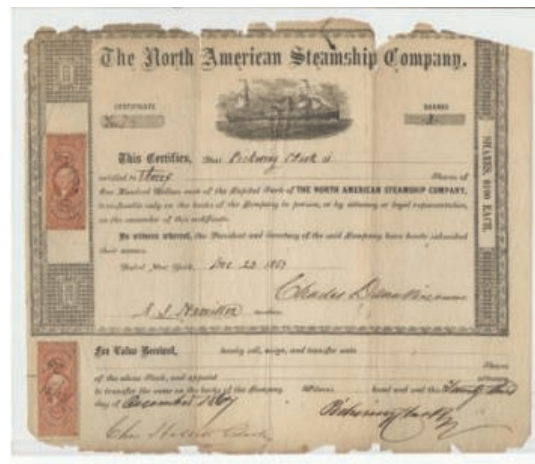 The North American Steamship Company.
CERTIFICATE
SHARES
No.
This Certifies, That Pickering Clark is
entitled to three Shares of
One Hundred Dollars each of the Capital Stock of THE NORTH AMERICAN STEAMSHIP COMPANY,
transferable only on the books of the Company in person, or by attorney or legal representative,
on the surrender of this certificate.
In witness whereof, the President and Secretary of the said Company have hereto subscribed
their names.
Dated New York, Dec 23 1867
Charles
Hamilton
SHARES, $100 EACH.
For Value Received, hereby sell, assign, and transfer unto
Shares
of the above Stock, and appoint attorney
to transfer the same on the books of the Company Witness hand and seal this Twenty third
day of December 1867
Pickering Clark
Chas